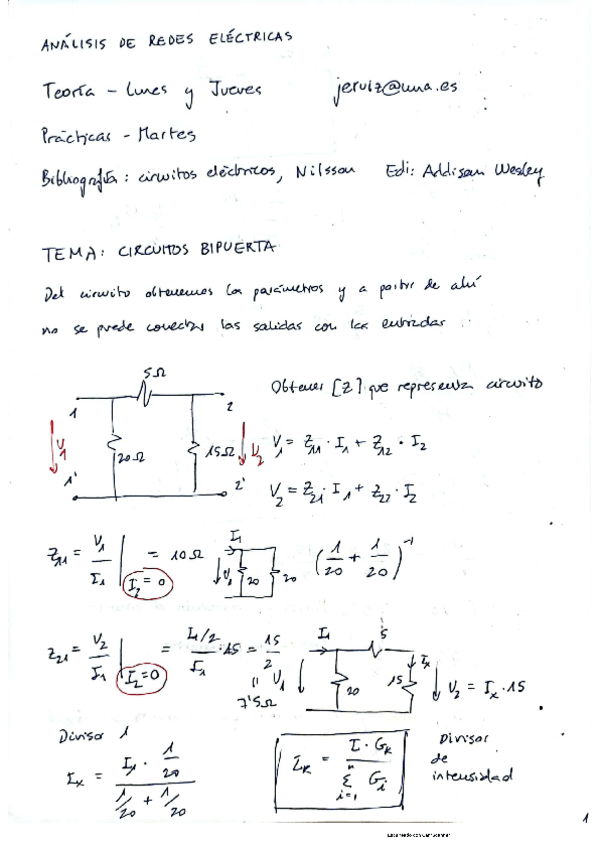 ANÁLISIS DE REDES ELÉCTRICAS
Teoría - Lunes y Jueves jeruiz@uma.es
Prácticas - Martes
Bibliografía: circuitos eléctricos, Nilsson Edi: Addison Wesley
TEMA: CIRCUITOS BIPUERTA
Del circuito obtenemos los parámetros y a partir de ahí
no se puede conectar las salidas con las entradas
5Ω
Obtener [Z] que representa circuito
1 2
V1 20Ω 15Ω V2 V1 = Z11 · I1 + Z12 · I2
1' 2' V2 = Z21 · I1 + Z22 · I2
Z11 = V1/I1 | I2 = 0 = 10Ω I1 V1 20 20 (1/20 + 1/20)^-1
Z21 = V2/I1 | I2=0 = I1/2/I1 · 15 = 15/2 = 7'5Ω V1 I1 5 20 15 Ix V2 = Ix · 15
Divisor I
Ix = I1 · 1/20 / 1/20 + 1/20 IK = I · GK / Σ i=1 n Gi Divisor
de
intensidad
1